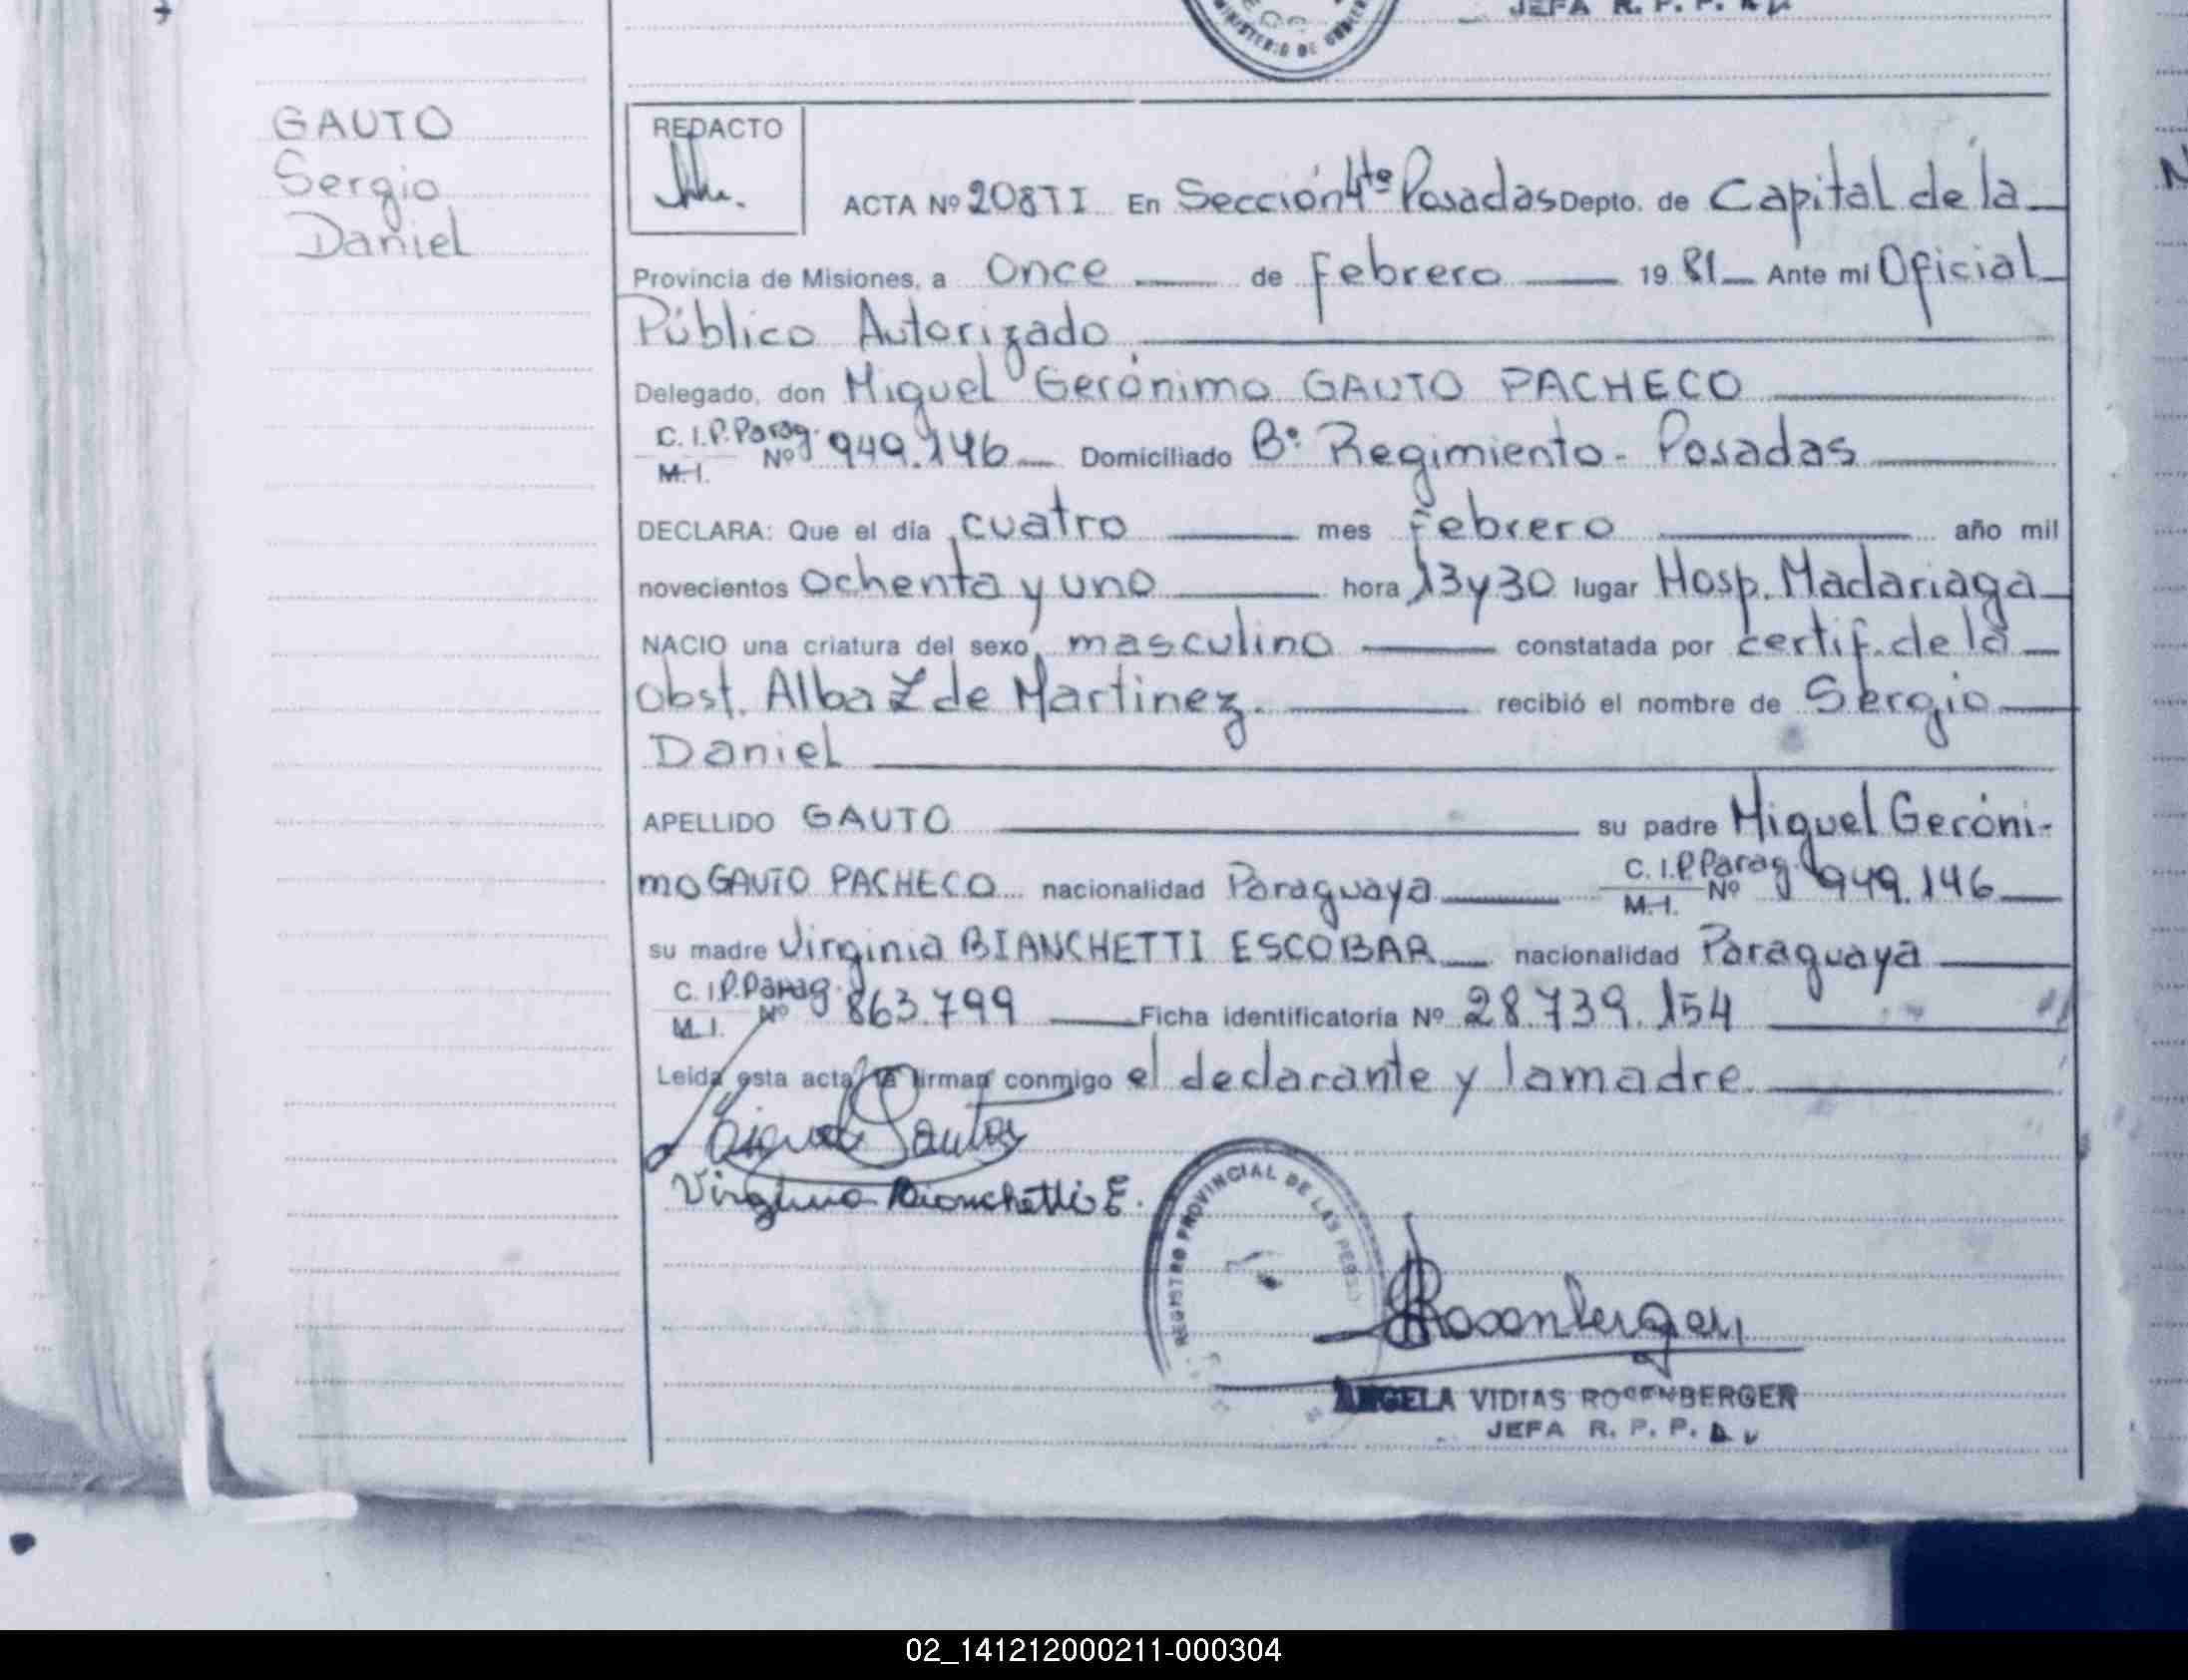 MINISTERIO DE
JEFA R. P. P.
GAUTO
Sergio
Daniel
REDACTO
ACTA Nº 208 TI En Sección 4ta Posadas Depto. de Capital de la
Provincia de Misiones, a Once de Febrero 19 81 Ante mí Oficial
Público Autorizado
Delegado, don Miguel Gerónimo GAUTO PACHECO
C. I. P. Parag.
M. I. Nº 949.146 Domiciliado Bº Regimiento - Posadas
DECLARA: Que el día cuatro mes Febrero año mil
novecientos ochenta y uno hora 13 y 30 lugar Hosp. Madariaga
NACIO una criatura del sexo masculino constatada por certif. de la
Obst. Alba Z de Martinez. recibió el nombre de Sergio
Daniel
APELLIDO GAUTO su padre Miguel Geróni-
mo GAUTO PACHECO nacionalidad Paraguaya C. I. P. Parag. M. I. Nº 949.146
su madre Virginia BIANCHETTI ESCOBAR nacionalidad Paraguaya
C. I. P. Parag.
M. I. Nº 863.799 Ficha identificatoria Nº 28.739.154
Leída esta acta, la firman conmigo el declarante y la madre
Virginia Bianchetti E.
REGISTRO PROVINCIAL DE LAS
Rosenberger
ANGELA VIDIAS ROSENBERGER
JEFA R. P. P.
02_141212000211-000304